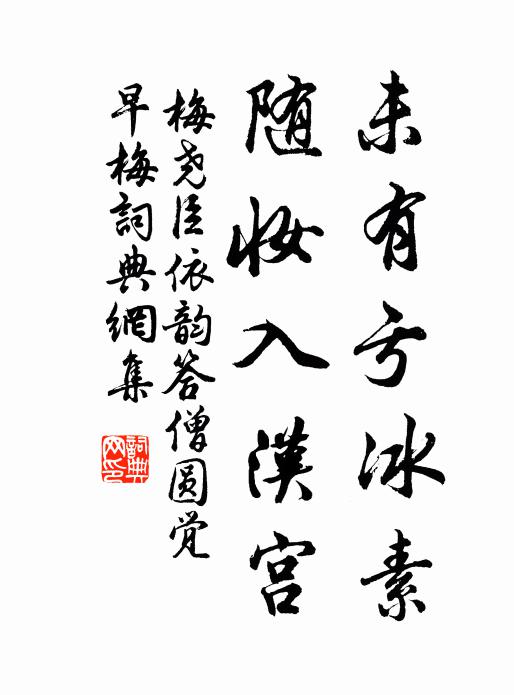 未有亏冰素
随妆入漢宫
梅尧臣依韵答僧圆觉
早梅詞典網集
詞典网印